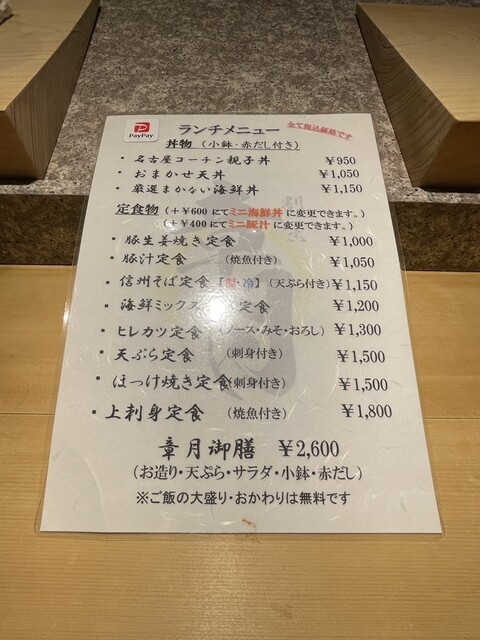 PayPay
ランチメニュー
全て税込価格です
丼物 (小鉢・赤だし付き)
・名古屋コーチン親子丼 ￥950
・おまかせ天丼 ￥1,050
・厳選まかない海鮮丼 ￥1,150
定食物 (＋￥600 にてミニ海鮮丼 に変更できます。)
(＋￥400 にてミニ豚汁 に変更できます。)
・豚生姜焼き定食 ￥1,000
・豚汁定食 (焼魚付き) ￥1,050
・信州そば定食【温・冷】(天ぷら付き) ￥1,150
・海鮮ミックス 定食 ￥1,200
・ヒレカツ定食 (ソース・みそ・おろし) ￥1,300
・天ぷら定食 (刺身付き) ￥1,500
・ほっけ焼き定食(刺身付き) ￥1,500
・上刺身定食 (焼魚付き) ￥1,800
章月御膳 ￥2,600
(お造り・天ぷら・サラダ・小鉢・赤だし)
※ご飯の大盛り・おかわりは無料です